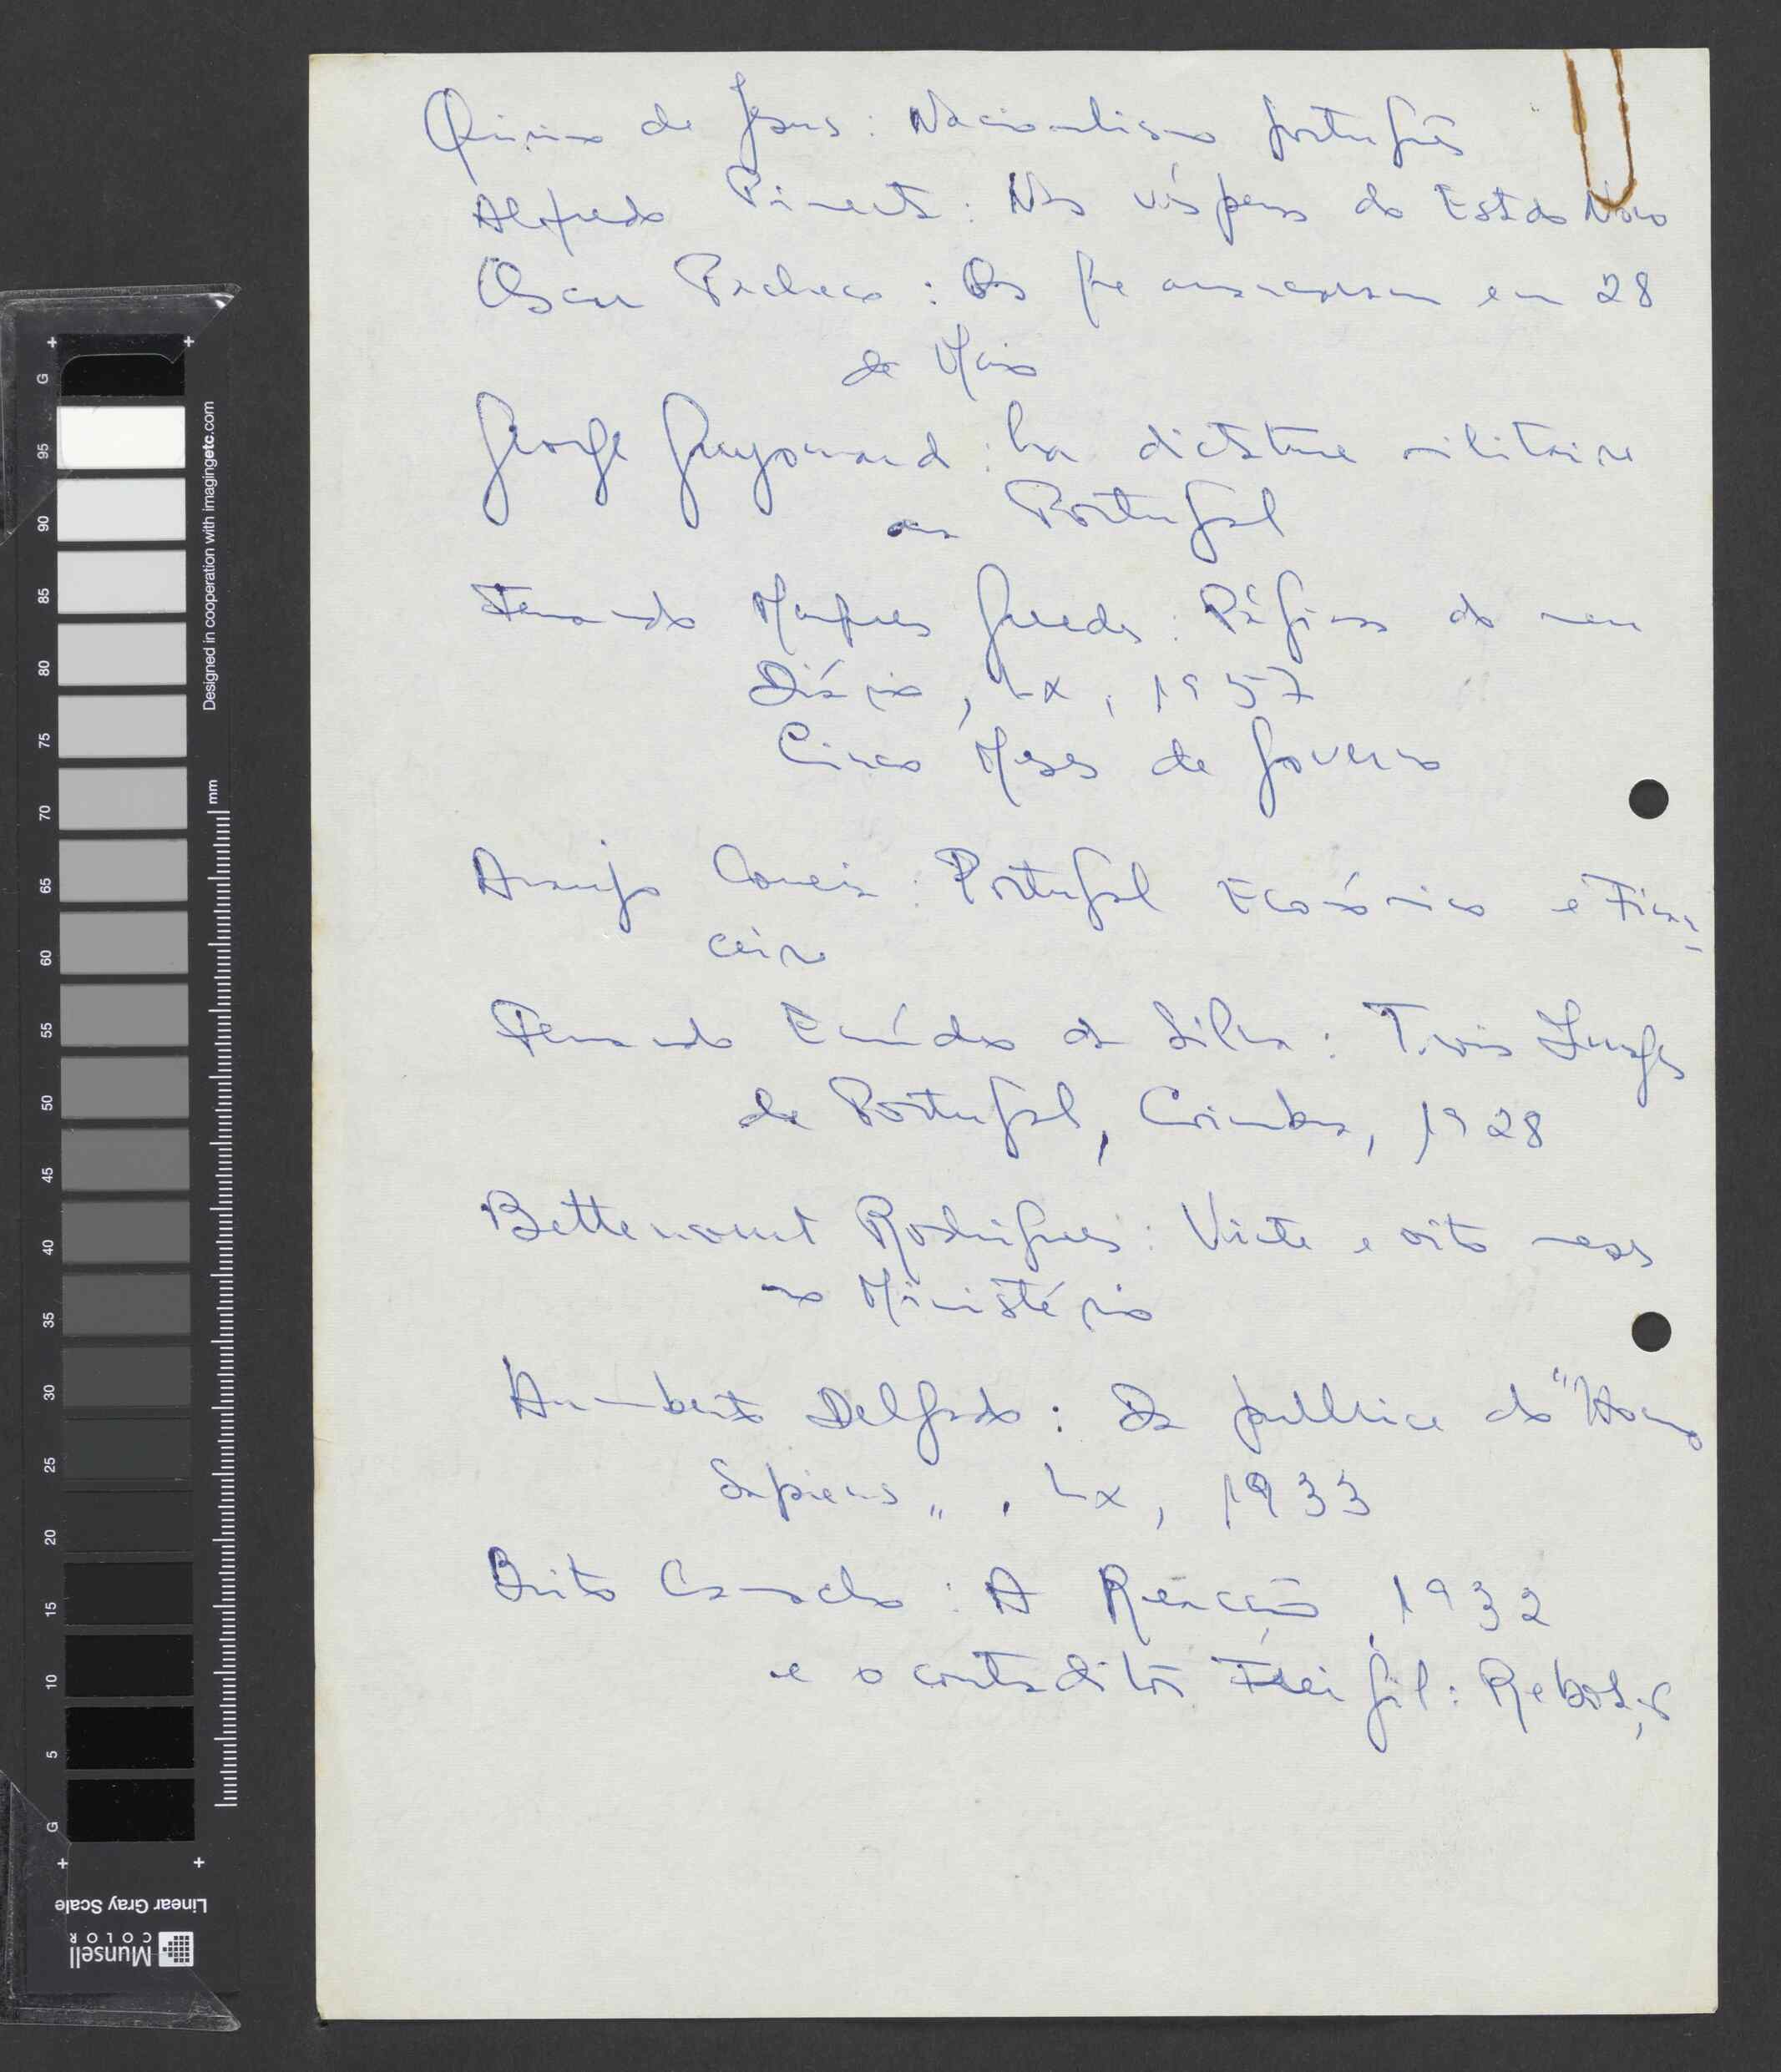 Quirino de Jesus: Nacionalismo português
Alfredo Pimenta: Nas vésperas do Estado Novo
Oscar Pacheco: Os que arrancaram em 28
de Maio
George Guyomard: La dictature militaire
au Portugal
Fernando Marques Guedes: Páginas do meu
Diário, Lx, 1957
Cinco Meses de Governo
Araujo Correia: Portugal Económico e Finan-
ceiro
Fernando Emídio da Silva:
de Portugal, Coimbra, 1928
Bettencourt Rodrigues: Vinte e oito meses
no Ministério
Humberto Delgado: Da pulhice do "Homo
Sapiens", Lx, 1933
Brito Camacho: A Reacção, 1932
e o contraditor Frei Gil:
+ +
G 95 90 85 80 75 70 65 60 55 50 45 40 35 30 25 20 15 10 5 G
Designed in cooperation with imagingetc.com
mm
+ +
Linear Gray Scale
Munsell
COLOR